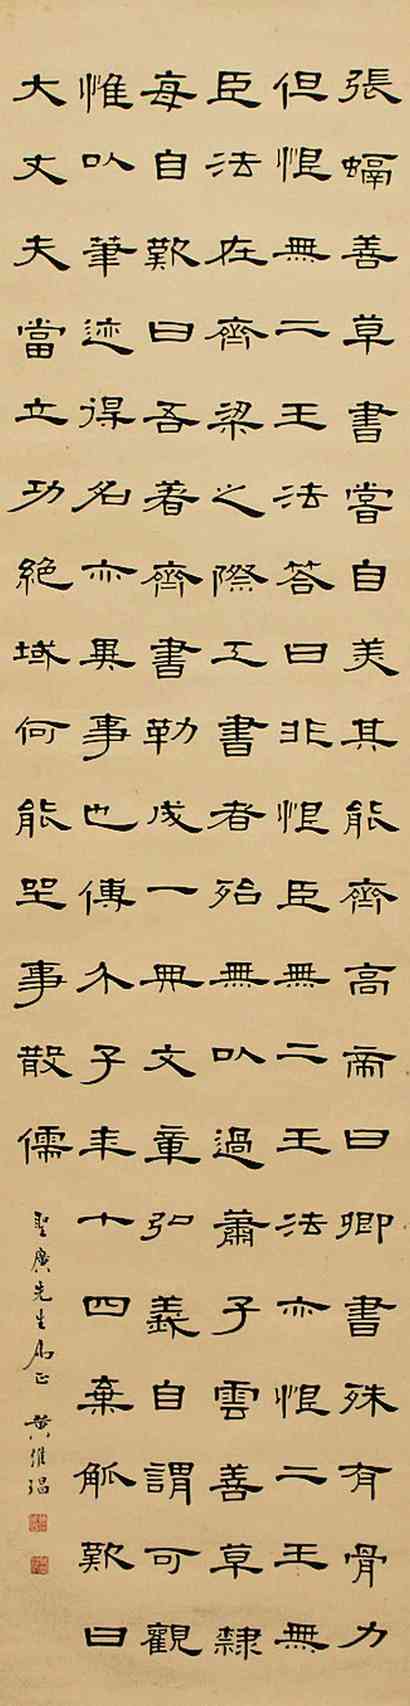 張螎善草書嘗自美其能齊高帝曰卿書殊有骨力
但恨無二王法答曰非恨臣無二王法亦恨二王無
臣法在齊梁之際工書者殆無以過蕭子雲善草隸
每自歎曰吾著齊書勒成一典文章弘義自謂可觀
惟以筆迹得名亦異事也傅介子年十四棄觚歎曰
大丈夫當立功絕域何能坐事散儒
聖廣先生屬正 黃維琩